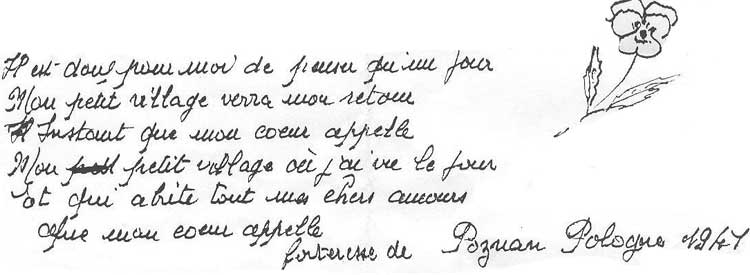 Il est doux pour moi de penser qu'un jour
Mon petit village verra mon retour
Instant que mon coeur appelle
Mon petit village où j'ai vu le jour
et qui abrite tout mes chers amours
Que mon coeur appelle
forteresse de Poznan Pologne 1941